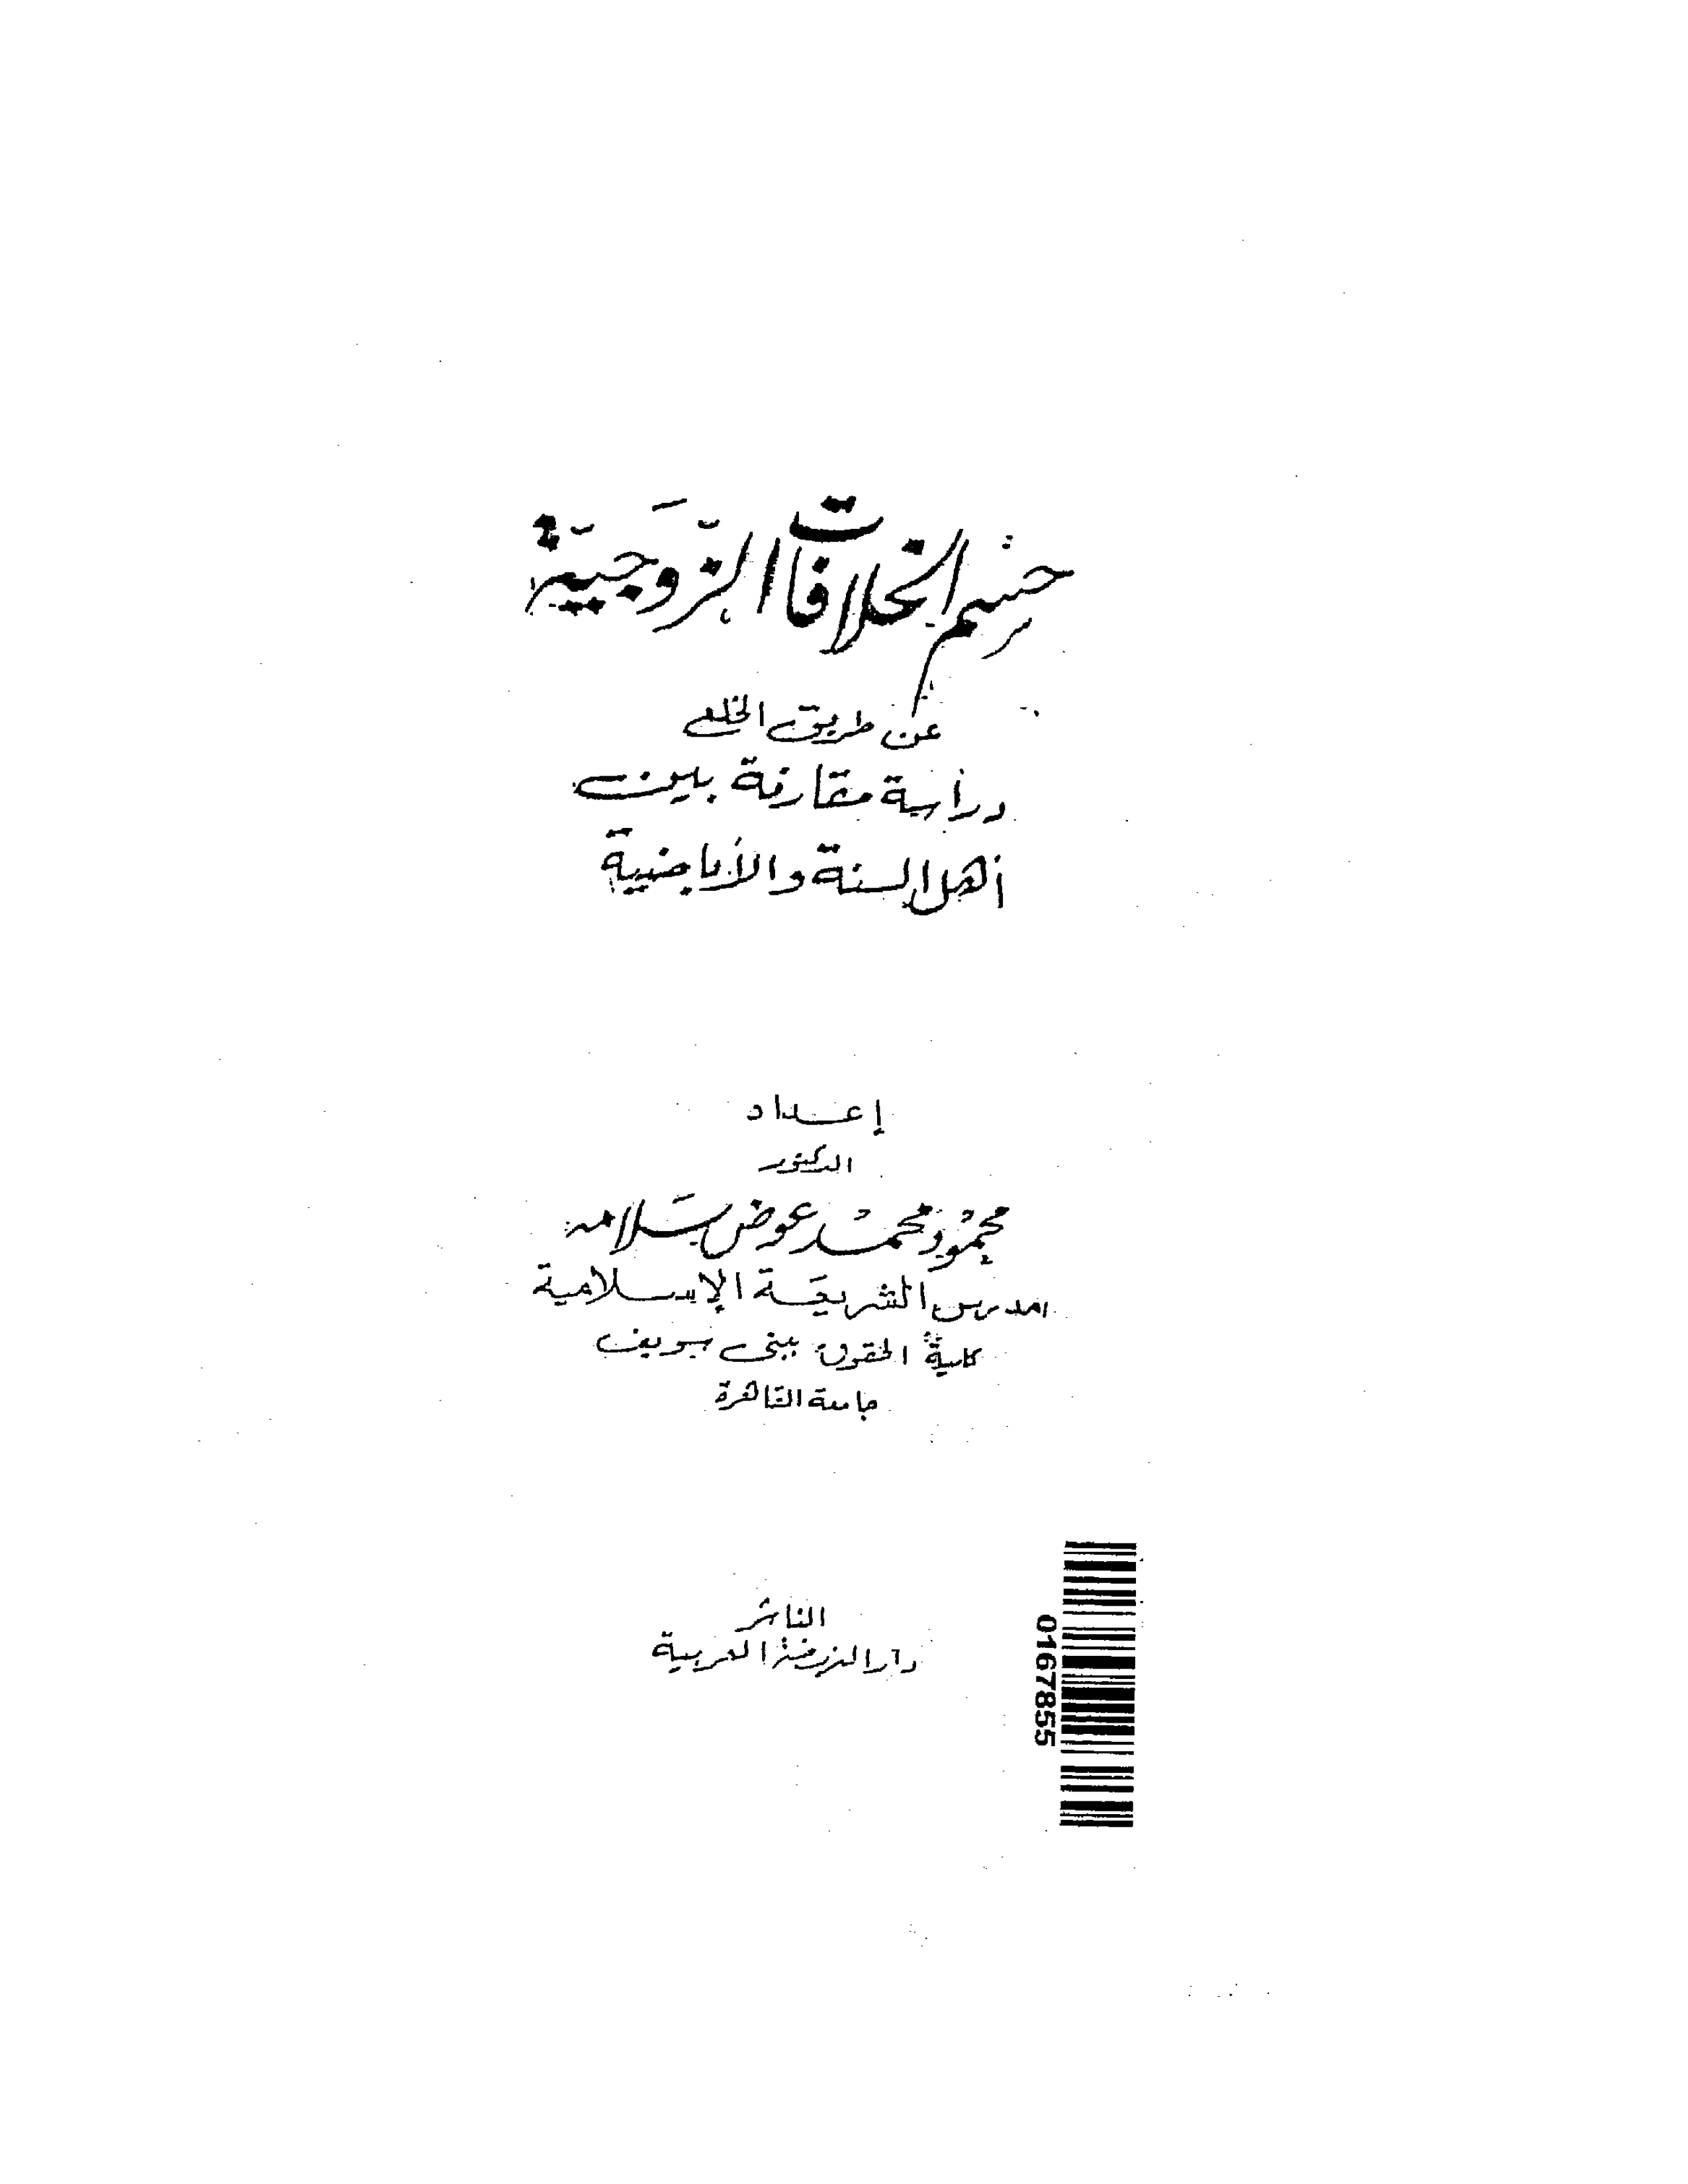 حسم الخلافات الزوجية
عن طريق الخلع
دراسة مقارنة بين
أهل السنة والأباضية
إعداد
الدكتور
محمود محمد عوض سلامه
مدرس الشريعة الإسلامية
كلية الحقوق ببنى سويف
جامعة القاهرة
الناشر
دار النهضة العربية
0167855